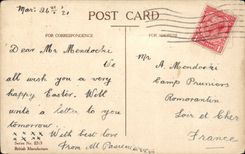 Mar: 26th /21
POST CARD
FOR CORRESPONDENCE
FOR ADDRESS
Dear Mr Mendocke
We
all wish you a very
happy Easter. Will
write a letter to you
tomorrow
With best love
from All
Series No.
British Manufacture
Mr
A.
Camp Pruniers
Romorantin
Loir et Cher
France